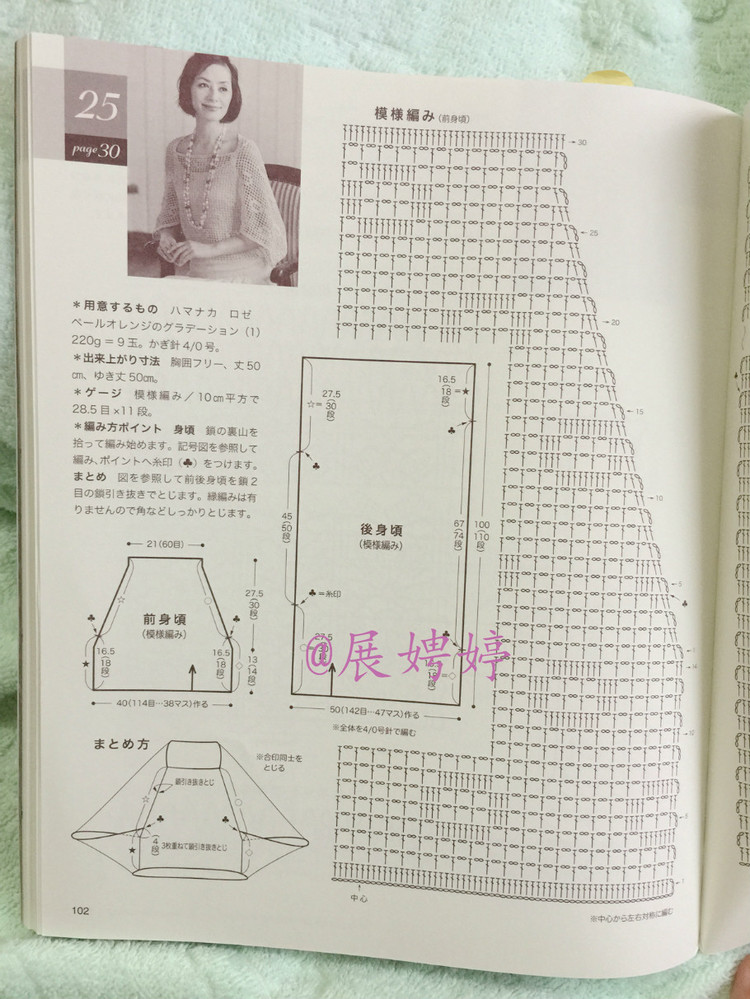 25
page 30
＊用意するもの　ハマナカ　ロゼ
ペールオレンジのグラデーション（1）
220g＝9玉。かぎ針4/0号。
＊出来上がり寸法　胸囲フリー、丈50
cm、ゆき丈50cm。
＊ゲージ　模様編み／10cm平方で
28.5目×11段。
＊編み方ポイント　身頃　鎖の裏山を
拾って編み始めます。記号図を参照して
編み、ポイントへ糸印（♣）をつけます。
まとめ　図を参照して前後身頃を鎖2
目の鎖引き抜きでとじます。縁編みは有
りませんので角などしっかりとじます。
21（60目）
前身頃
（模様編み）
27.5
（30段）
16.5
（18段）
16.5
（18段）
13
（14段）
40（114目…38マス）作る
まとめ方
※合印同士を
とじる
鎖引き抜きとじ
（4段）
3枚重ねて鎖引き抜きとじ
102
模様編み（前身頃）
30
25
20
15
10
5
☆＝27.5
（30段）
16.5
（18段）＝★
45
（50段）
後身頃
（模様編み）
67
（74段）
100
（110段）
♣＝糸印
27.5
@展娉婷
50（142目…47マス）作る
※全体を4/0号針で編む
中心
※中心から左右対称に編む